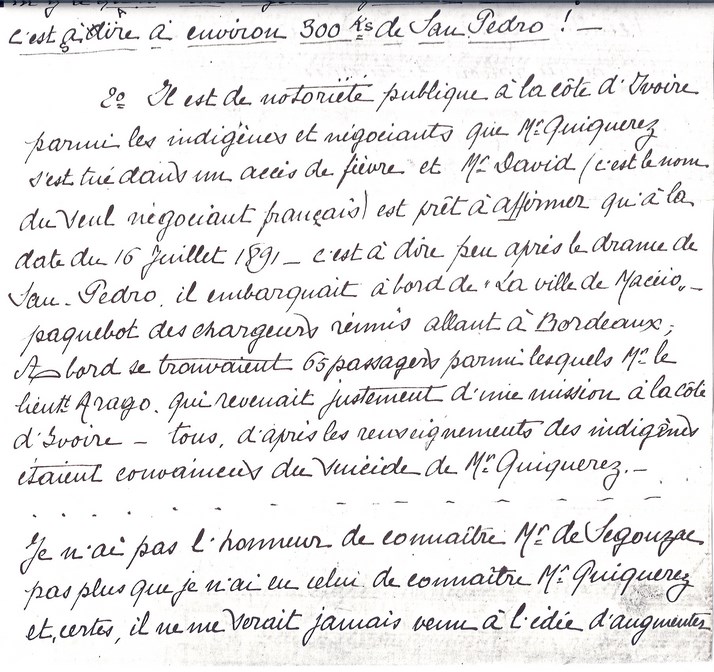 c'est à dire à environ 300 Ks de San Pedro ! —
2º Il est de notoriété publique à la côte d'Ivoire
parmi les indigènes et négociants que Mr Quiquerez
s'est tué dans un accès de fièvre et Mr David (c'est le nom
du seul négociant français) est prêt à affirmer qu'à la
date du 16 Juillet 1891 — c'est à dire peu après le drame de
San-Pedro, il embarquait à bord de "La ville de Macéio" —
paquebot des chargeurs réunis allant à Bordeaux ;
A bord se trouvaient 65 passagers parmi lesquels Mr le
lieutt Arago, qui revenait justement d'une mission à la côte
d'Ivoire — tous, d'après les renseignements des indigènes
étaient convaincus du suicide de Mr Quiquerez. —
Je n'ai pas l'honneur de connaître Mr de Segonzac
pas plus que je n'ai eu celui de connaître Mr Quiquerez
et, certes, il ne me serait jamais venu à l'idée d'augmenter